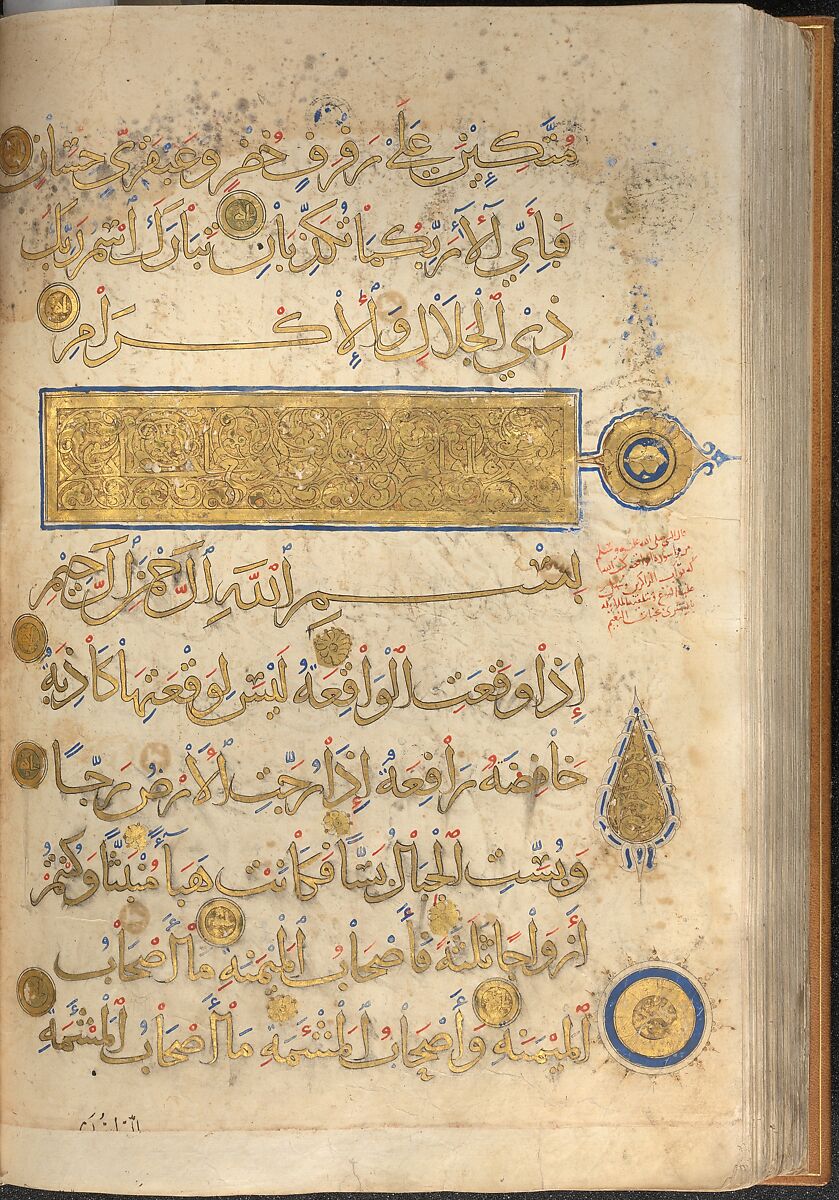 مُتَّكِئِينَ عَلَىٰ رَفْرَفٍ خُضْرٍ وَعَبْقَرِيٍّ حِسَانٍ
فَبِأَيِّ آلَاءِ رَبِّكُمَا تُكَذِّبَانِ تَبَارَكَ اسْمُ رَبِّكَ
ذِي الْجَلَالِ وَالْإِكْرَامِ
بِسْمِ اللَّهِ الرَّحْمَٰنِ الرَّحِيمِ
إِذَا وَقَعَتِ الْوَاقِعَةُ لَيْسَ لِوَقْعَتِهَا كَاذِبَةٌ
خَافِضَةٌ رَافِعَةٌ إِذَا رُجَّتِ الْأَرْضُ رَجًّا
وَبُسَّتِ الْجِبَالُ بَسًّا فَكَانَتْ هَبَاءً مُنْبَثًّا وَكُنْتُمْ
أَزْوَاجًا ثَلَاثَةً فَأَصْحَابُ الْمَيْمَنَةِ مَا أَصْحَابُ
الْمَيْمَنَةِ وَأَصْحَابُ الْمَشْئَمَةِ مَا أَصْحَابُ الْمَشْئَمَةِ